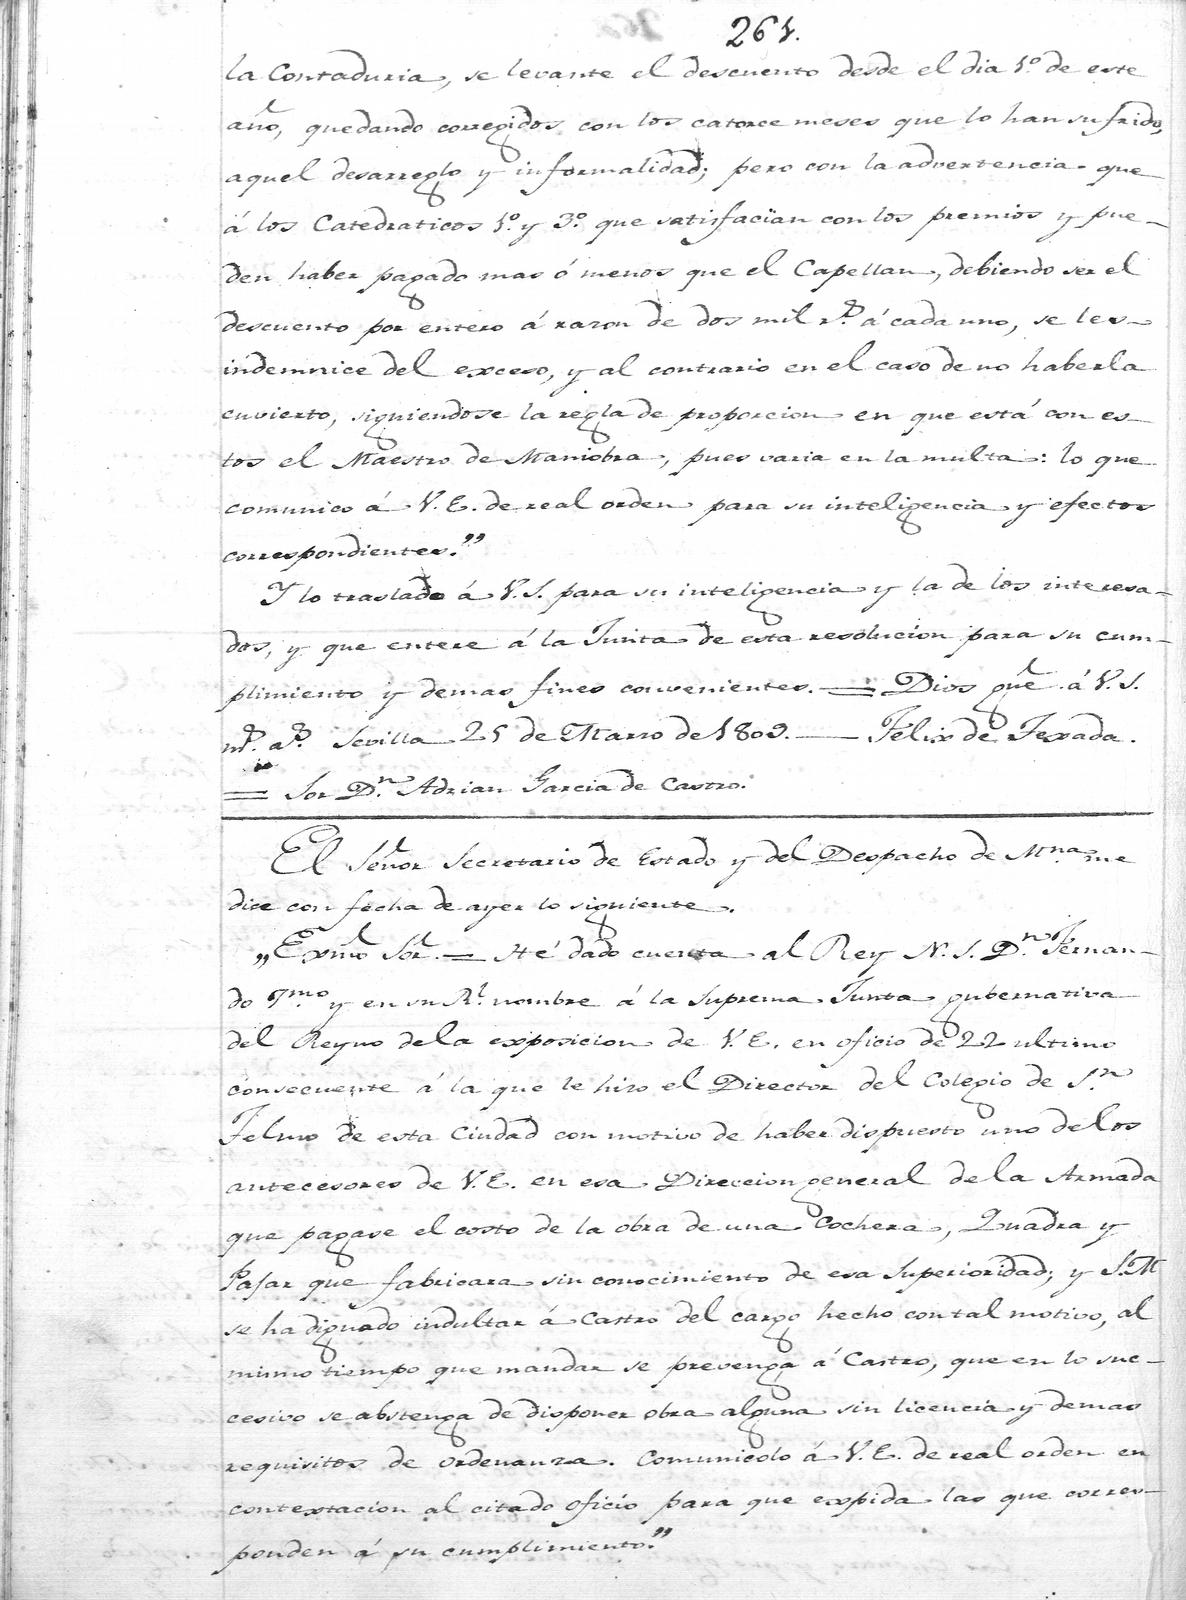 261.
la Contaduria, se levante el descuento desde el dia 1º. de este
año, quedando corregidos con los catorce meses que lo han sufrido,
aquel desarreglo y informalidad; pero con la advertencia que
á los Catedraticos 1º. y 3º. que satisfacian con los premios y pue-
den haber pagado mas ó menos que el Capellan, debiendo ser el
descuento por entero á razon de dos mil rs. á cada uno, se les
indemnice del exceso, y al contrario en el caso de no haberla
cuvierto, siguiendose la regla de proporcion en que está con es-
tos el Maestro de Maniobra, pues varia en la multa: lo que
comunico á V. E. de real orden para su inteligencia y efectos
correspondientes."
Y lo traslado á V. S. para su inteligencia y la de los interesa-
dos, y que entere á la Junta de esta resolucion para su cum-
plimiento y demas fines convenientes. = Dios gue. á V. S.
ms. as. Sevilla 25 de Marzo de 1809. — Felix de Texada.
= Sor. Dn. Adrian Garcia de Castro.
El Señor Secretario de Estado y del Despacho de Mna. me
dice con fecha de ayer lo siguiente.
„Exmo. Sor. = Hé dado cuenta al Rey N. S. Dn. Fernan-
do 7mo. y en su Rl. nombre á la Suprema Junta gubernativa
del Reyno de la exposicion de V. E. en oficio de 22 ultimo
consecuente á la que le hizo el Director del Colegio de Sn.
Telmo de esta Ciudad con motivo de haber dispuesto uno de los
antecesores de V. E. en esa Direccion general de la Armada
que pagase el costo de la obra de una Cochera, Quadra y
Pajar que fabricara sin conocimiento de esa Superioridad; y S. M.
se ha dignado indultar á Castro del cargo hecho con tal motivo, al
mismo tiempo que mandar se prevenga á Castro, que en lo suc-
cesivo se abstenga de disponer obra alguna sin licencia y demas
requisitos de ordenanza. Comunicolo á V. E. de real orden en
contextacion al citado oficio para que expida las que corres-
ponden á su cumplimiento."